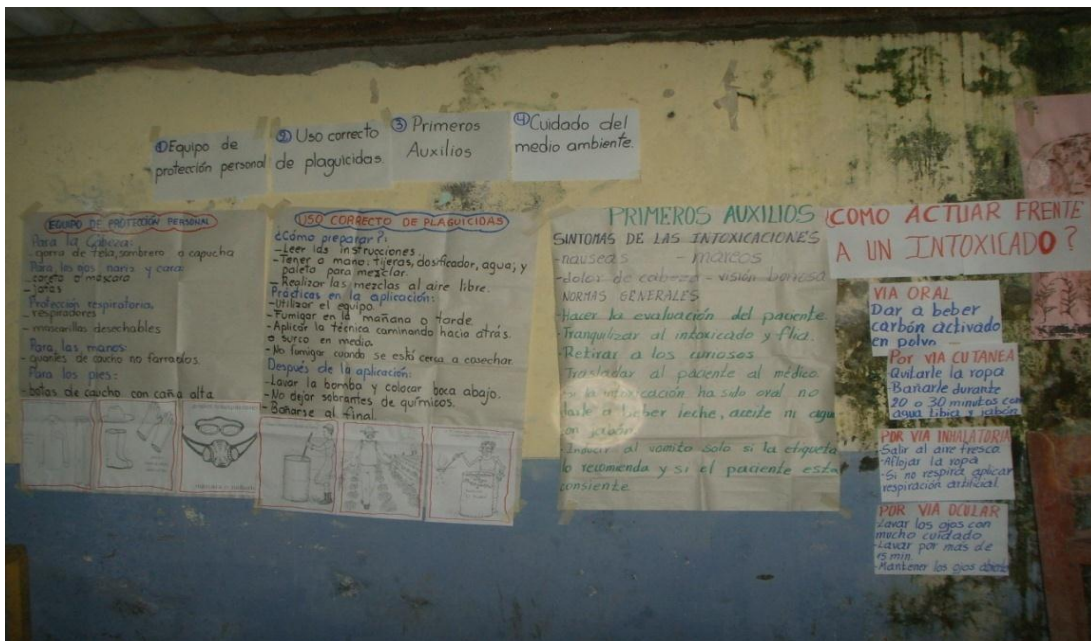 ①Equipo de
protección personal
② Uso correcto
de plaguicidas.
③ Primeros
Auxilios
④Cuidado del
medio ambiente.
EQUIPO DE PROTECCIÓN PERSONAL
Para la Cabeza:
-gorra de tela, sombrero o capucha
Para los ojos nariz y cara:
-careta o máscara
-gafas
Protección respiratoria.
-respiradores
-mascarillas desechables
Para las manos:
-guantes de caucho no forrados.
Para los pies:
-botas de caucho con caña alta
USO CORRECTO DE PLAGUICIDAS
¿Cómo preparar?:
-Leer las instrucciones.
-Tener a mano: tijeras, dosificador, agua; y
paleta para mezclar.
-Realizar las mezclas al aire libre.
Prácticas en la aplicación:
-Utilizar el equipo.
-Fumigar en la mañana o tarde.
-Aplicar la técnica caminando hacia atrás
o surco en medio.
-No fumigar cuando se está cerca a cosechar.
Después de la aplicación:
-Lavar la bomba y colocar boca abajo.
-No dejar sobrantes de químicos.
-Bañarse al final.
PRIMEROS AUXILIOS
SINTOMAS DE LAS INTOXICACIONES
-nauseas - mareos
-dolor de cabeza - visión borrosa
NORMAS GENERALES
-Hacer la evaluación del paciente.
-Tranquilizar al intoxicado y flia.
-Retirar a los curiosos
-Trasladar al paciente al médico.
-Si la intoxicación ha sido oral no
darle a beber leche, aceite ni agua
con jabón.
-Inducir al vomito solo si la etiqueta
lo recomienda y si el paciente esta
consiente
¿COMO ACTUAR FRENTE
A UN INTOXICADO?
VIA ORAL
Dar a beber
carbón activado
en polvo
Por VIA CUTANEA
Quitarle la ropa
Bañarle durante
20 o 30 minutos con
agua tibia y jabón
POR VIA INHALATORIA
Salir al aire fresco.
-Aflojar la ropa
-Si no respira aplicar
respiración artificial
POR VIA OCULAR
-Lavar los ojos con
mucho cuidado
-Lavar por mas de
15 min.
-Mantener los ojos abiertos